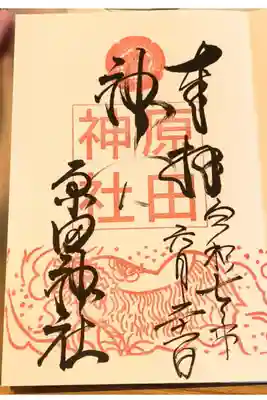 奉拝
令和七年
六月
神
原田
神社
原田神社